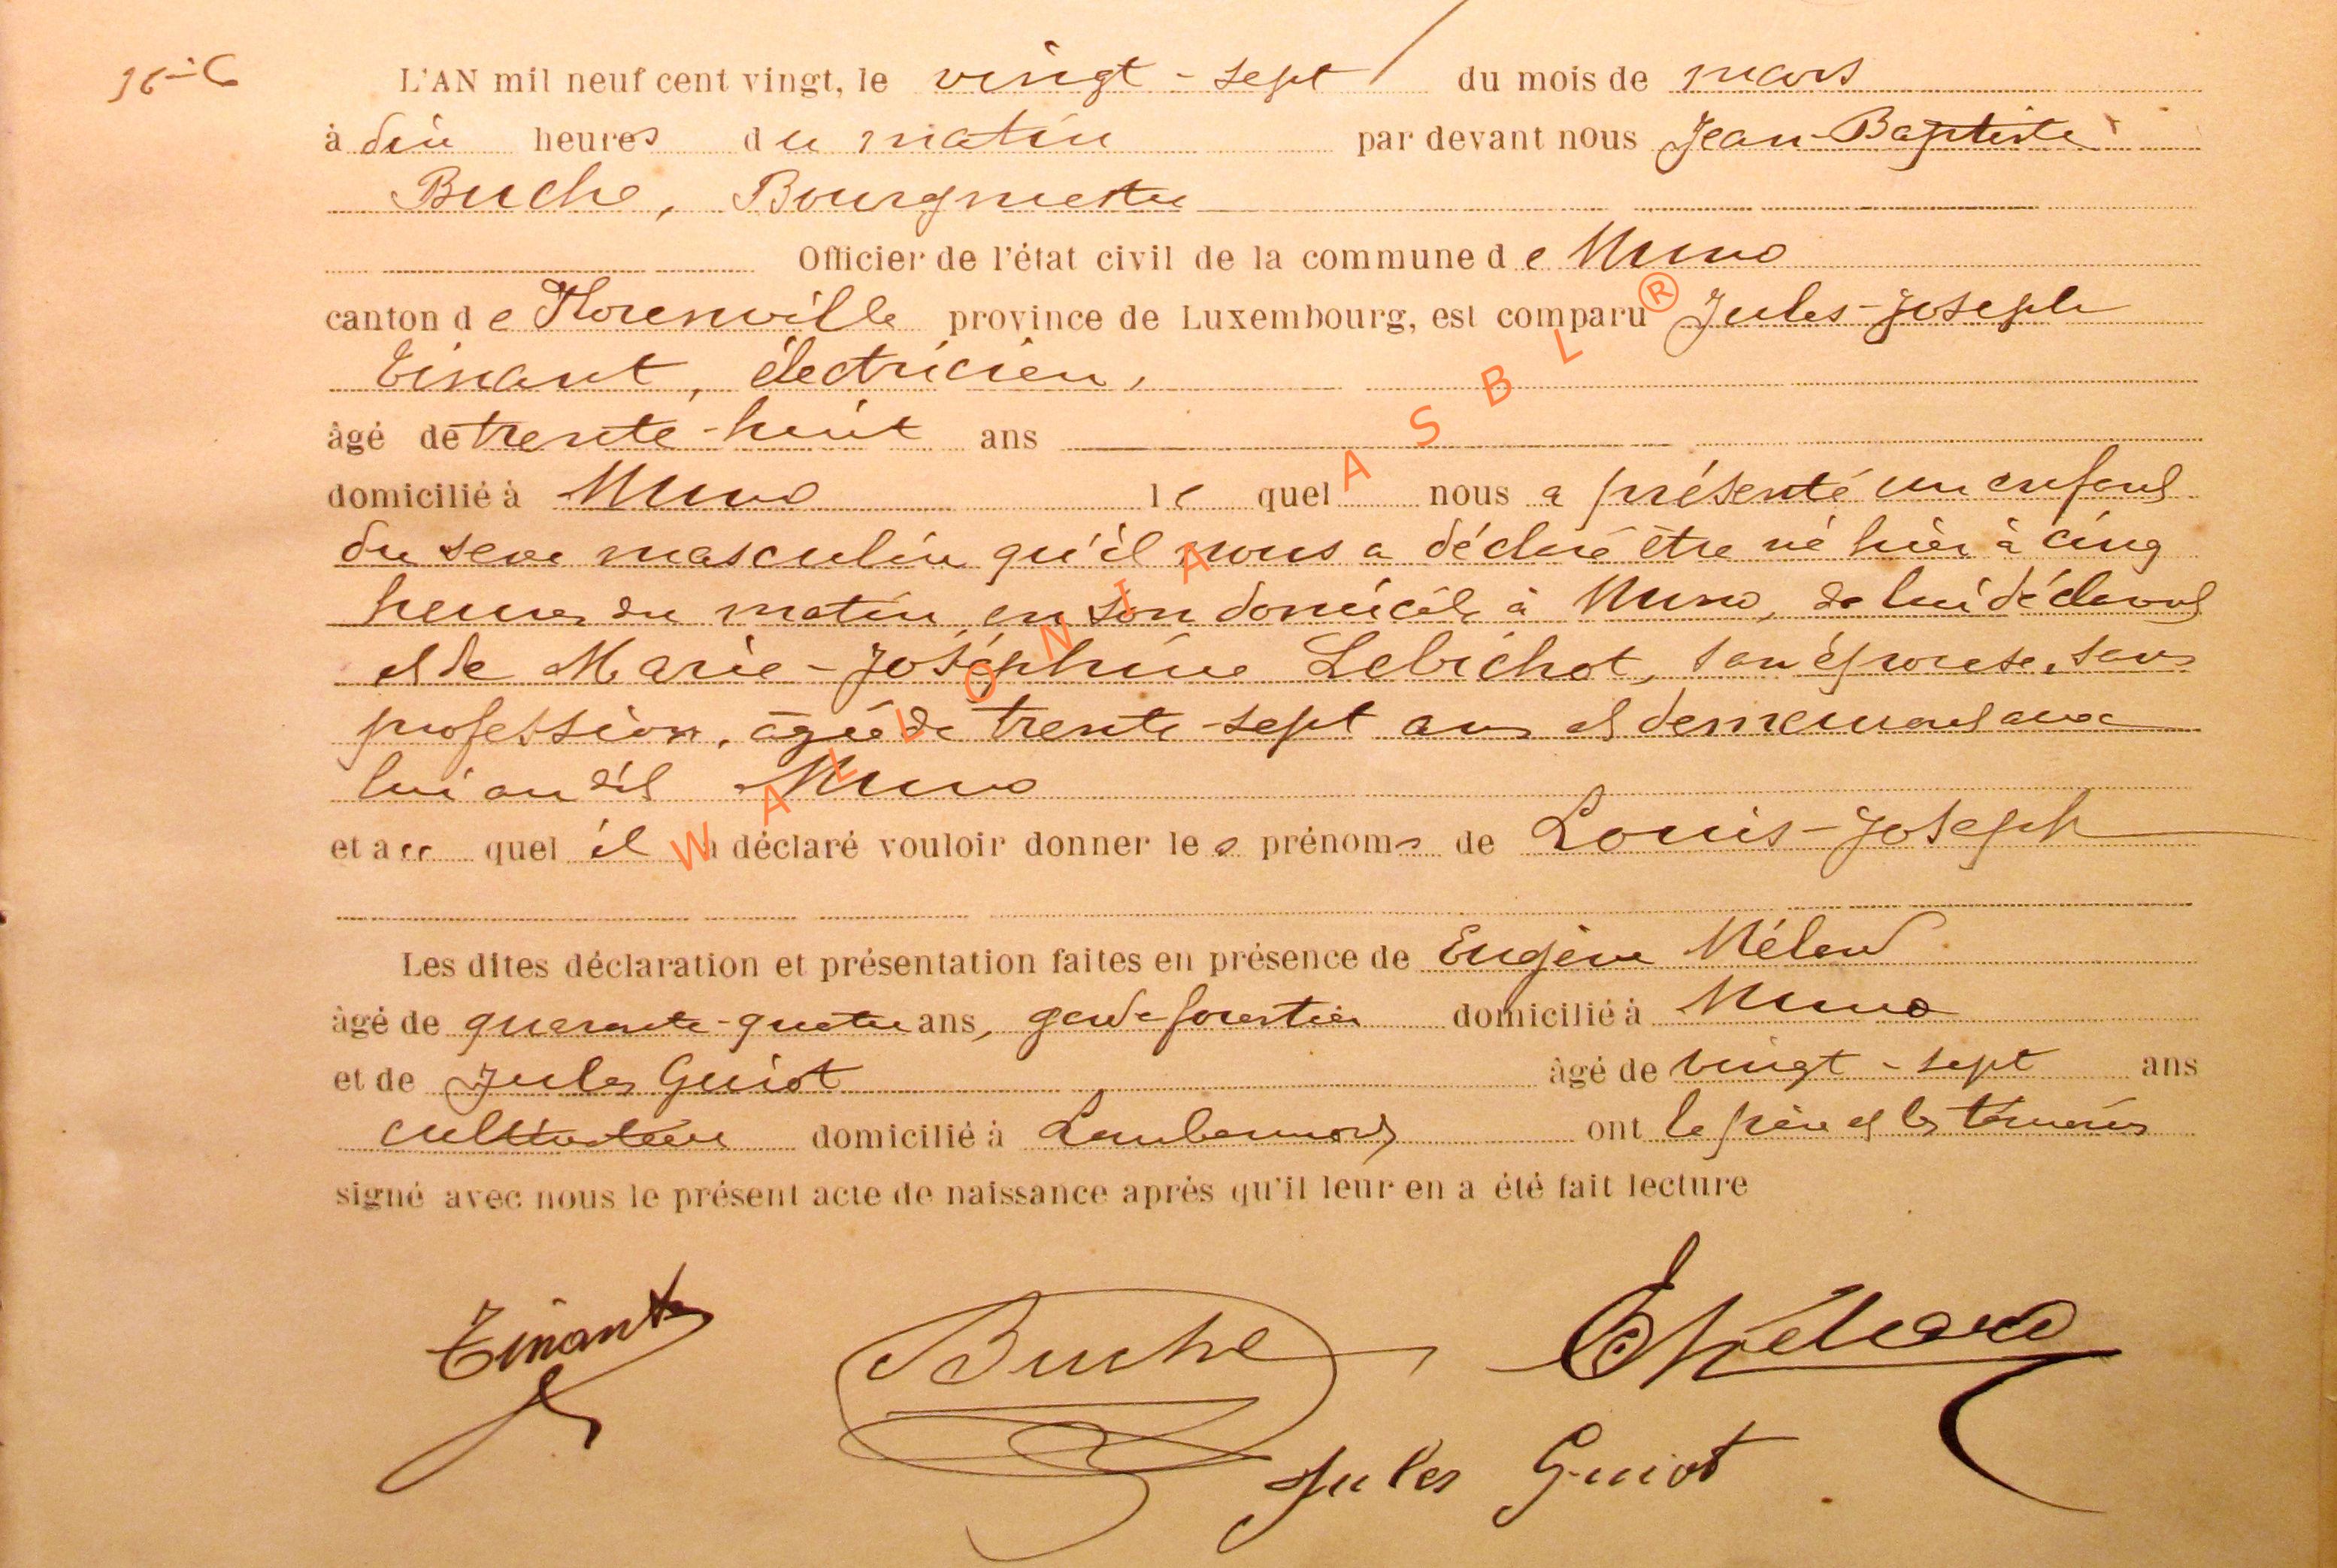 L'AN mil neuf cent vingt, le vingt-sept du mois de mars
à dix heures du matin par devant nous Jean-Baptiste
Buche, Bourgmestre
Officier de l'état civil de la commune de Muno
canton de Florenville province de Luxembourg, est comparu Jules-Joseph
Tinant, électricien,
âgé de trente-huit ans
domicilié à Muno lequel nous a présenté un enfant
du sexe masculin qu'il nous a déclaré être né hier à cinq
heures du matin, en son domicile à Muno, de lui déclarant
et de Marie-Joséphine Lebichot, son épouse, sans
profession, âgée de trente-sept ans et demeurant avec
lui au dit Muno
et au quel il a déclaré vouloir donner les prénoms de Louis-Joseph
Les dites déclaration et présentation faites en présence de Eugène
âgé de quarante-quatre ans, garde forestier domicilié à Muno
et de Jules Guiot âgé de vingt-sept ans
cultivateur domicilié à ont le père et les témoins
signé avec nous le présent acte de naissance après qu'il leur en a été fait lecture
Tinant Buche
Jules Guiot
WALLONIA ASBL ®